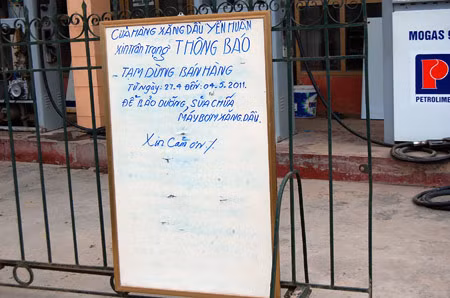 CỬA HÀNG XĂNG DẦU YÊN HUÂN
XIN TRÂN TRỌNG THÔNG BÁO
- TẠM DỪNG BÁN HÀNG
TỪ NGÀY: 27.4 ĐẾN: 04.5.2011.
ĐỂ BẢO DƯỠNG, SỬA CHỮA
MÁY BƠM XĂNG, DẦU.
Xin Cảm ơn
MOGAS 9
P
PETROLIME